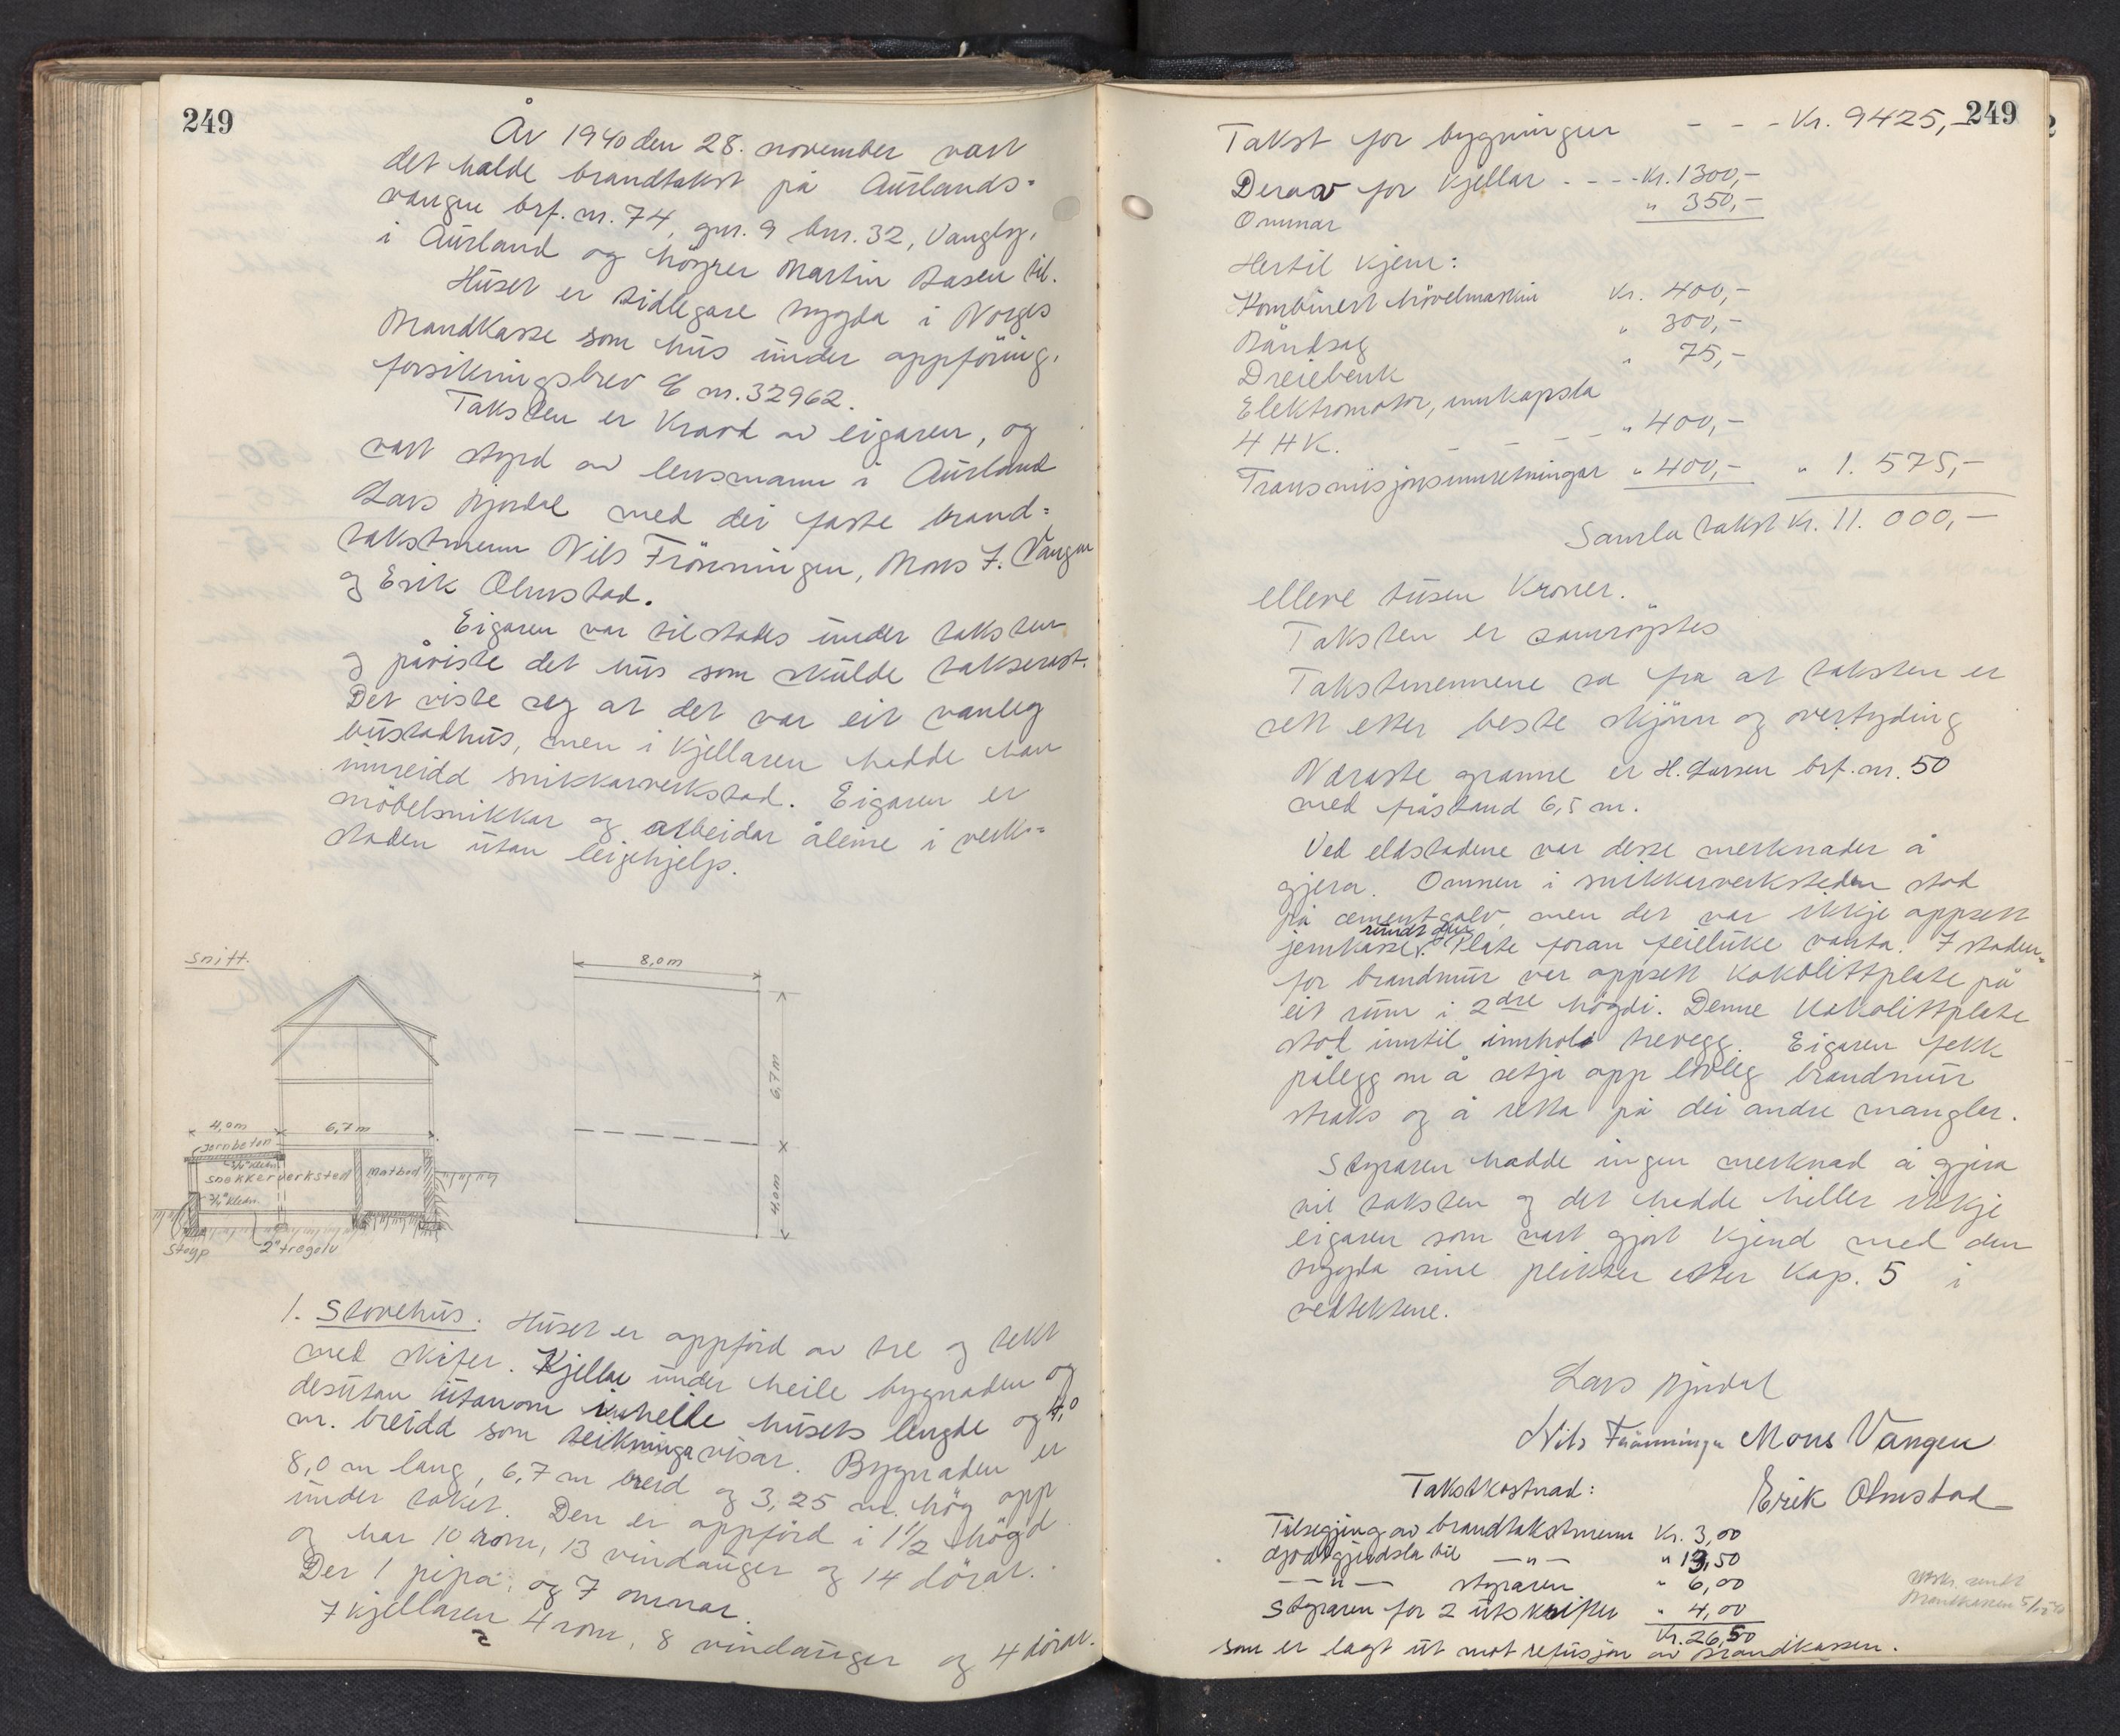 249
År 1940 den 28. november vart
det halde brandtakst på Aurlands-
vangen brf. nr. 74, gnr. 9 bnr. 32, Vangby,
i Aurland og höyrer Martin Lasen til.
Huset er tidlegare trygda i Norges
Brandkasse som hus under oppföring,
forsikringsbrev E nr. 32962.
Taksten er kravd av eigaren, og
vart styrd av lensmann i Aurland
Lars Bjørdal med dei faste brand-
takstmenn Nils Frönningen, Mons J. Vangen
og Erik Ohnstad.
Eigaren var tilstades under taksten
og påviste det hus som skulde takserast.
Det viste seg at det var eit vanleg
bustadhus, men i kjellaren hadde han
innreidd snikkarverkstad. Eigaren er
möbelsnikkar og arbeidar åleine i verk-
staden utan leigehjelp.
Snitt.
8,0 m
6,7 m
4,0 m
4,0 m
6,7 m
Jernbeton
3/4" kledn.
snekkerverksted
matbod
3/4" kledn.
Støyp
2" tregolv
1. Stovehus. Huset er oppförd av tre og tekt
med skifer. Kjellar under heile bygnaden og
desutan utanom i heile husets lengde og 4,0
m. breidd som teikninga visar. Bygnaden er
8,0 m lang, 6,7 m breid og 3,25 m. hög opp
under taket. Den er oppförd i 1 1/2 högd
og har 10 rom, 13 vindauger og 14 dörar.
Der 1 pipa, og 7 omnar.
I kjellaren 4 rom, 8 vindauger og 4 dörar.
249
Takst for bygningen - - - Kr. 9425,-
Derav for kjellar - - - Kr. 1300,-
Omnar " 350,-
Hertil kjem:
Kombinert hövelmaskin Kr. 400,-
Båndsag " 300,-
Dreiebenk " 75,-
Elektromotor, innkapsla
4 HK. - - - - " 400,-
Transmisjonsinnretningar " 400,- " 1.575,-
Samla takst Kr. 11.000,-
elleve tusen kroner.
Taksten er samröystes
Takstmennene sa fra at taksten er
sett etter beste skjönn og overtyding
Næraste granne er H. Larsen brf. nr. 50
med fråstand 6,5 m.
Ved eldstadene var desse merknader å
gjera. Omnen i snikkarverksteden stod
på cementgolv, men det var ikkje oppsett
rundt den
jernkasse. Plate foran feieluke vanta. I staden-
for brandmur var oppsett Kokolittplate på
eit rum i 2dre högdi. Denne Kokolittplate
stod inntil innhold trevegg. Eigaren fekk
pålegg om å setja opp lovleg brandmur
straks og å retta på dei andre manglar.
Styraren hadde ingen merknad å gjera
til taksten og det hadde heller ikkje
eigaren som vart gjort kjend med den
trygda sine plikter etter Kap. 5 i
vedtektene.
Lars Bjørdal
Nils Frönningen Mons Vangen
Erik Ohnstad
Takstkostnad:
Tilsegjing av brandtakstmenn Kr. 3,00
Godtgjördsla til —"— " 13,50
—"— styraren " 6,00
Styraren for 2 utskrifter " 4,00
Kr. 26,50
som er lagt ut mot refusjon av Brandkassen.
Utskr. sendt
Brandkassen